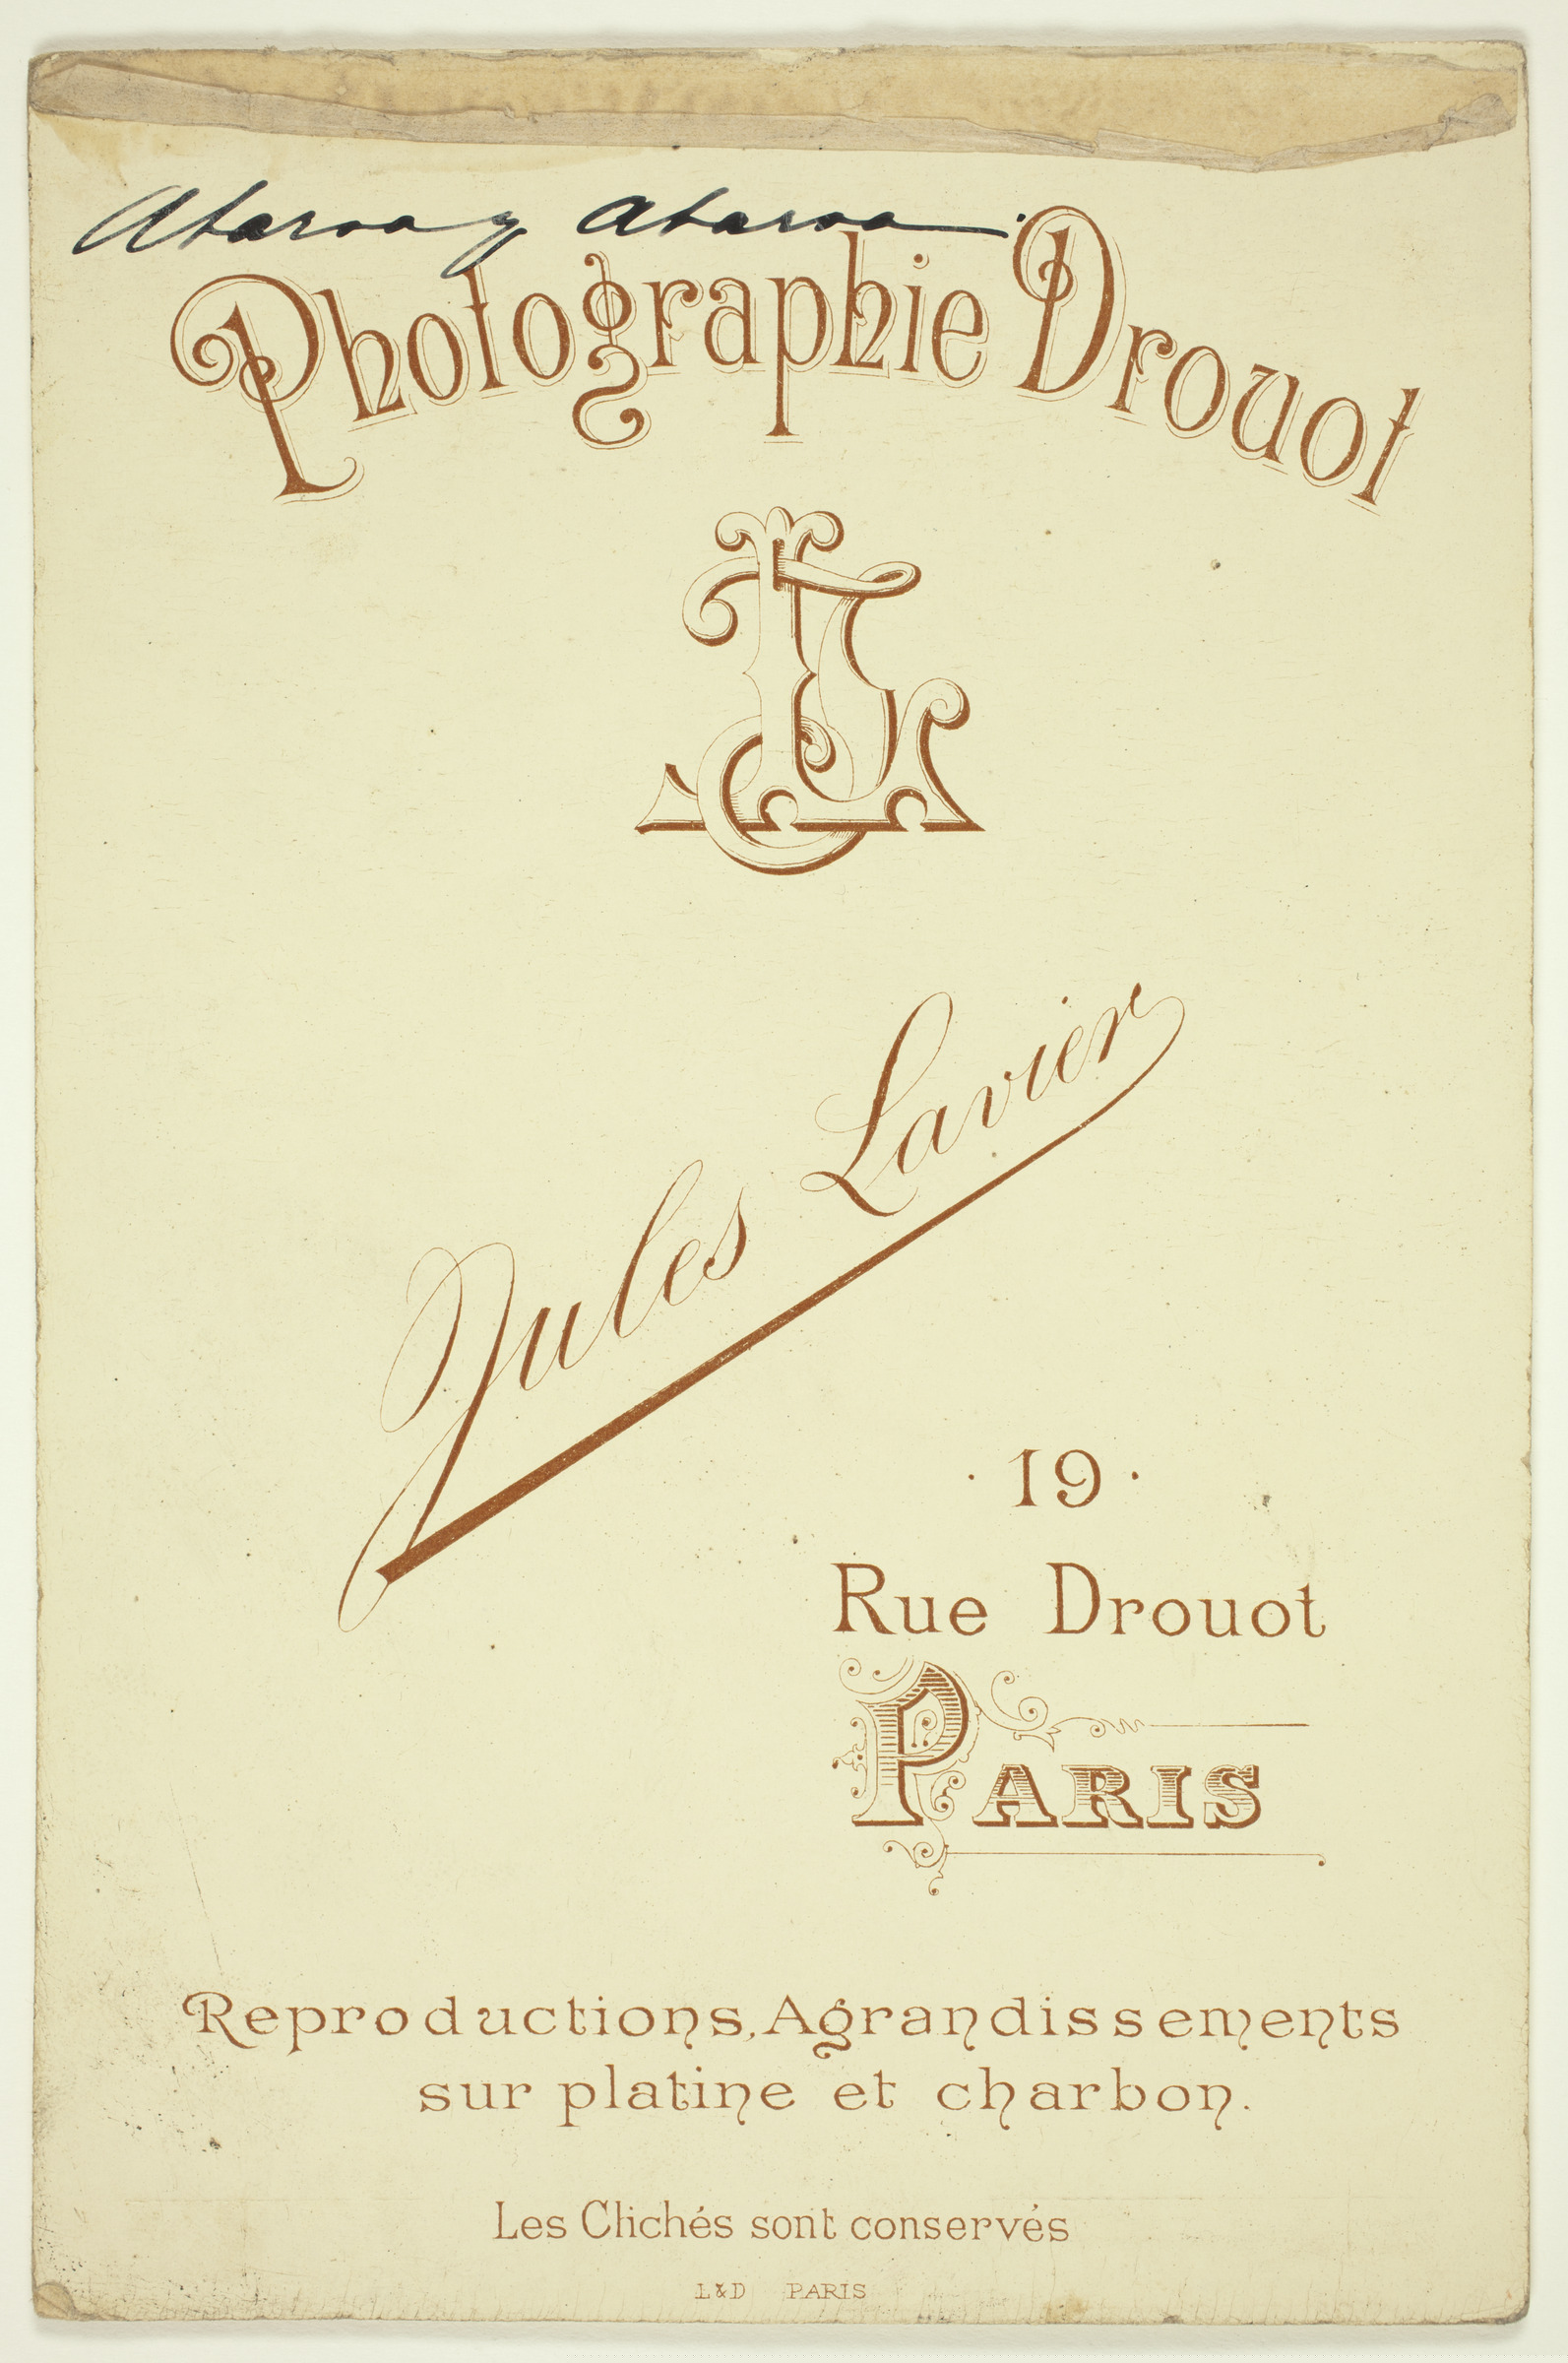 Abaroa y Abaroa.
Photographie Drouot
JL
Jules Lavier
· 19 ·
Rue Drouot
PARIS
Reproductions, Agrandissements
sur platine et charbon.
Les Clichés sont conservés
L&D PARIS